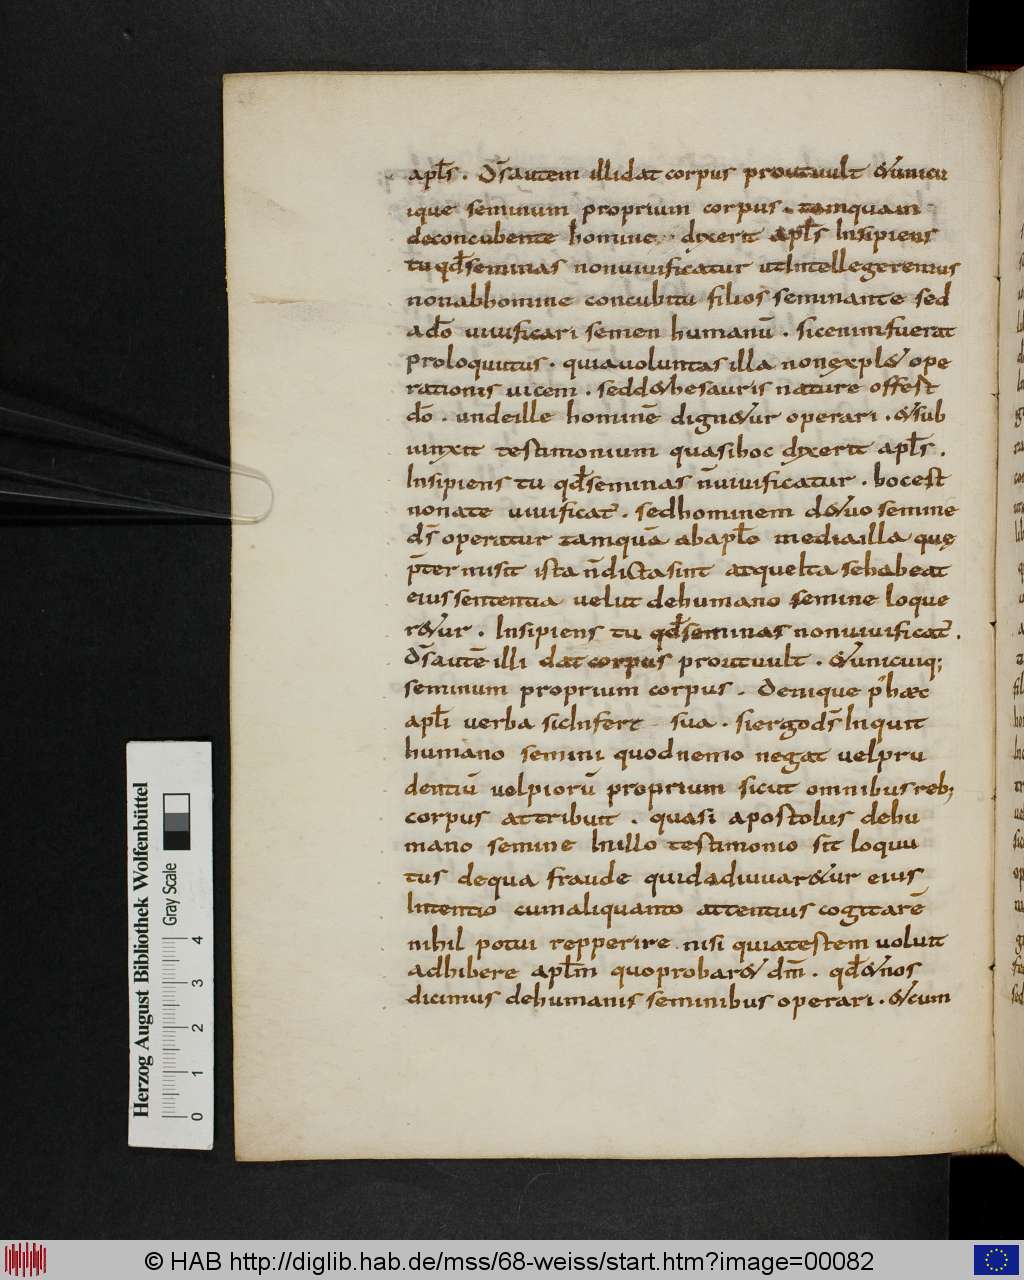 apl̄s. Dsautem illi dat corpus prout uult &unicu
ique seminum proprium corpus. tamquam
deconcubente homine. dixerit apl̄s Insipiens
tu qd̄seminas nonuiuificatur utIntellegeremus
nonabhomine concubitu filios seminante sed
ado uiuificari semen humanū. sicenimfuerat
proloquutus. quiauoluntas illa nonexpl& ope
rationis uicem. sedd&hesauris nature offest
dō. undeille hominē dign&ur operari. &sub
iunxit testimonium quasihoc dixerit apl̄s.
Insipiens tu qd̄seminas n̄uiuificatur. hocest
nonate uiuificat̄. sedhominem d&uo semine
ds̄ operatur tamquā abaplō mediailla quę
p̄termisit ista n̄dicta sint atqueIta sehabeat
eius sententia uelut dehumano semine loque
r&ur. Insipiens tu qd̄seminas nonuiuificat̄.
Ds̄autē illi dat corpus proutuult. &unicuiq;
seminum proprium corpus. Denique p̄ hæc
apl̄i uerba sicInfert sua. siergods̄ Inquit
humano semini quodnemo negat uelpru
dentiū uelpiorū proprium sicut omnibusreb;
corpus attribuit. quasi apostolus dehu
mano semine Inullo testimonio sit loquu
tus dequa fraude quidadiuuar&ur eius
Intentio cumaliquanto attentius cogitarē
nihil potui repperire nisi quiatestem uoluit
adhibere apl̄m quoprobar& dm̄. qd̄&nos
dicimus dehumanis seminibus operari. &cum
Herzog August Bibliothek Wolfenbüttel
Gray Scale
0 1 2 3 4
© HAB http://diglib.hab.de/mss/68-weiss/start.htm?image=00082